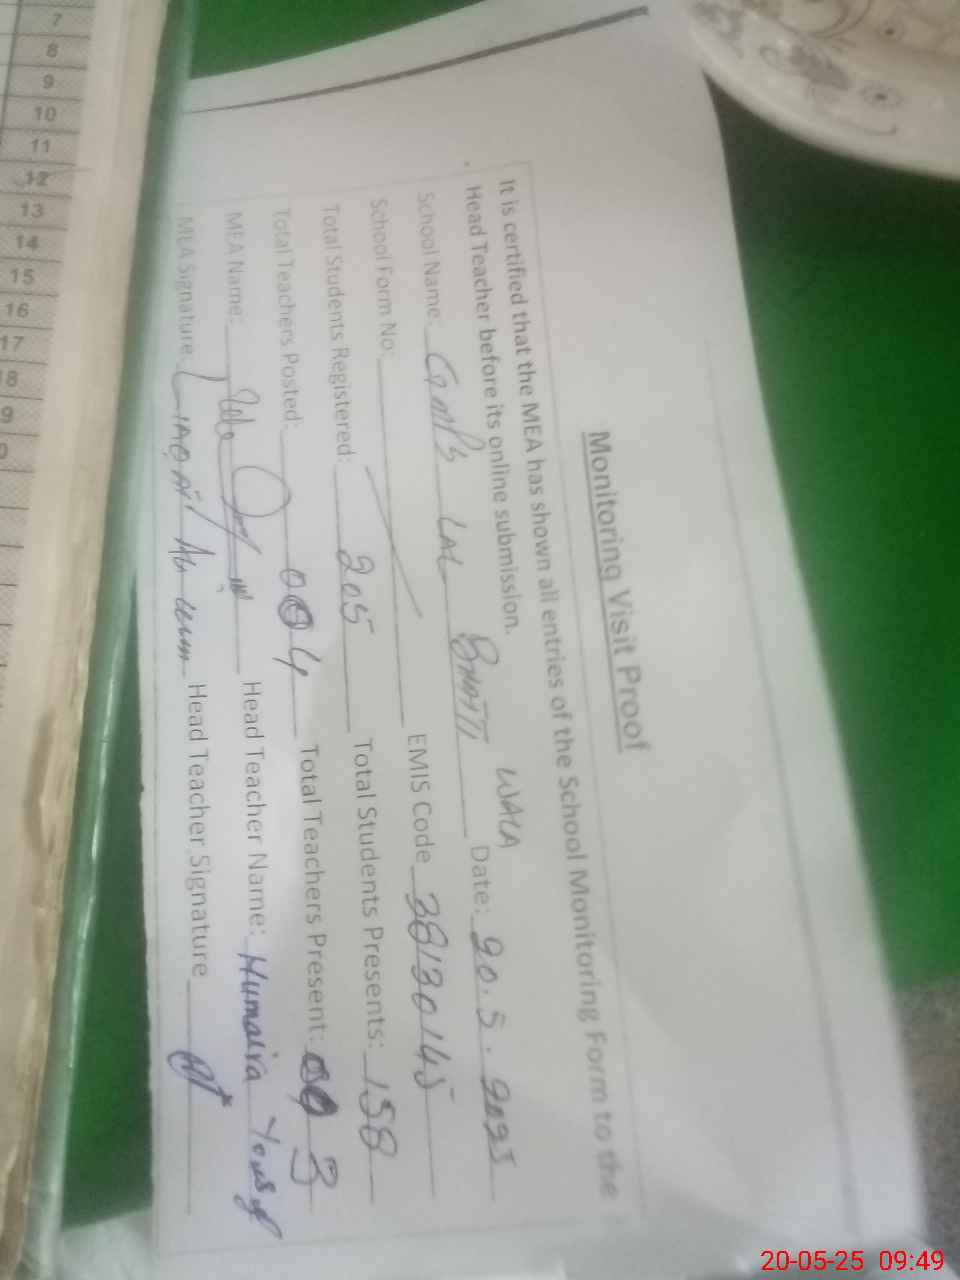 Monitoring Visit Proof
It is certified that the MEA has shown all entries of the School Monitoring Form to the
Head Teacher before its online submission.
School Name: GMPS LAL BHATTI WALA Date: 20.5.2025
School Form No: EMIS Code 38130145
Total Students Registered: 205 Total Students Presents: 158
Total Teachers Posted: 004 Total Teachers Present: 3
MEA Name: Head Teacher Name: Humaira Yousaf
MEA Signature: LIAQAT Head Teacher Signature
7
8
9
10
11
12
13
14
15
16
17
8
9
0
20-05-25 09:49